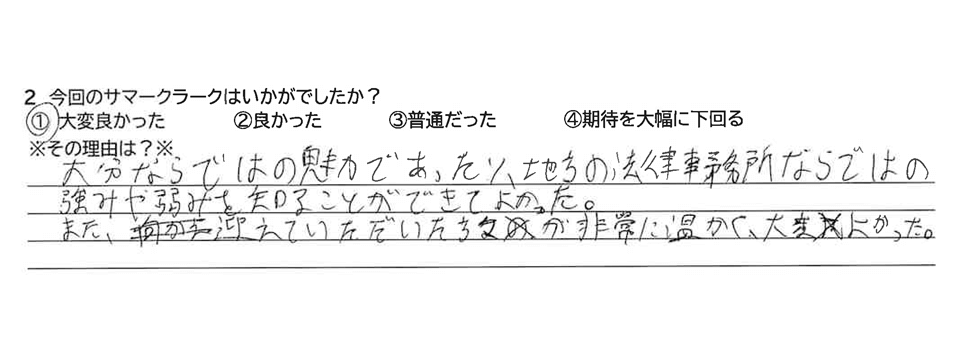 2 今回のサマークラークはいかがでしたか？
①大変良かった ②良かった ③普通だった ④期待を大幅に下回る
※その理由は？※
大分ならではの魅力であったり、地方の法律事務所ならではの
強みや弱みを知ることができてよかった。
また、迎えていただいた方々が非常に温かく、大変よかった。